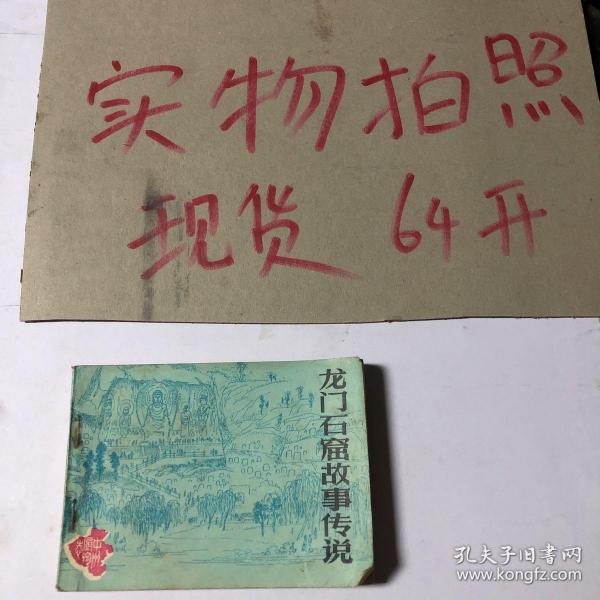 实物拍照
现货 64开
龙门石窟故事传说
中州
孔夫子旧书网
www.kongfz.com